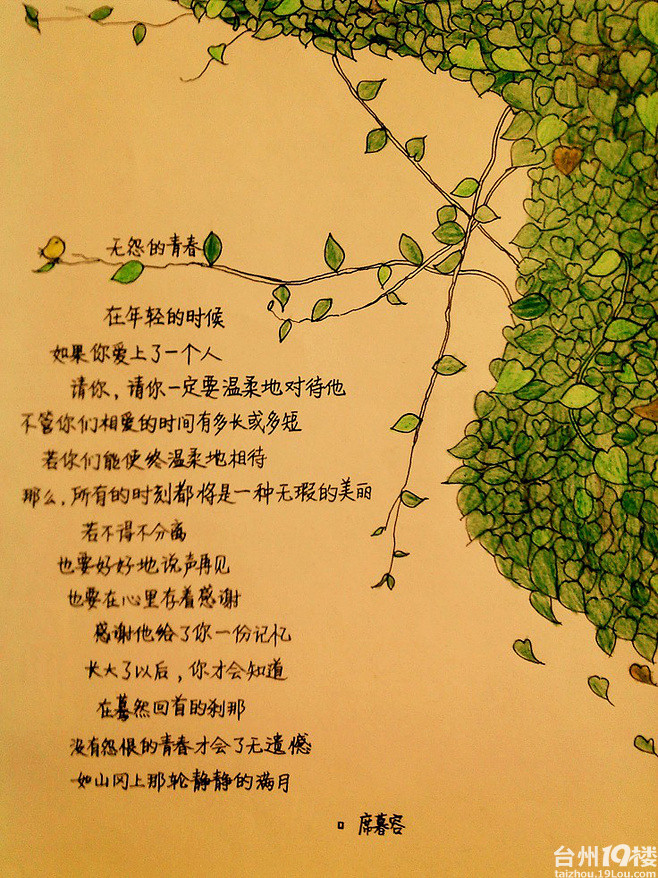 无怨的青春
在年轻的时候
如果你爱上了一个人
请你，请你一定要温柔地对待他
不管你们相爱的时间有多长或多短
若你们能使终温柔地相待
那么，所有的时刻都将是一种无瑕的美丽
若不得不分离
也要好好地说声再见
也要在心里存着感谢
感谢他给了你一份记忆
长大了以后，你才会知道
在蓦然回首的刹那
没有怨恨的青春才会了无遗憾
如山冈上那轮静静的满月
席暮容
台州19楼
taizhou.19Lou.com